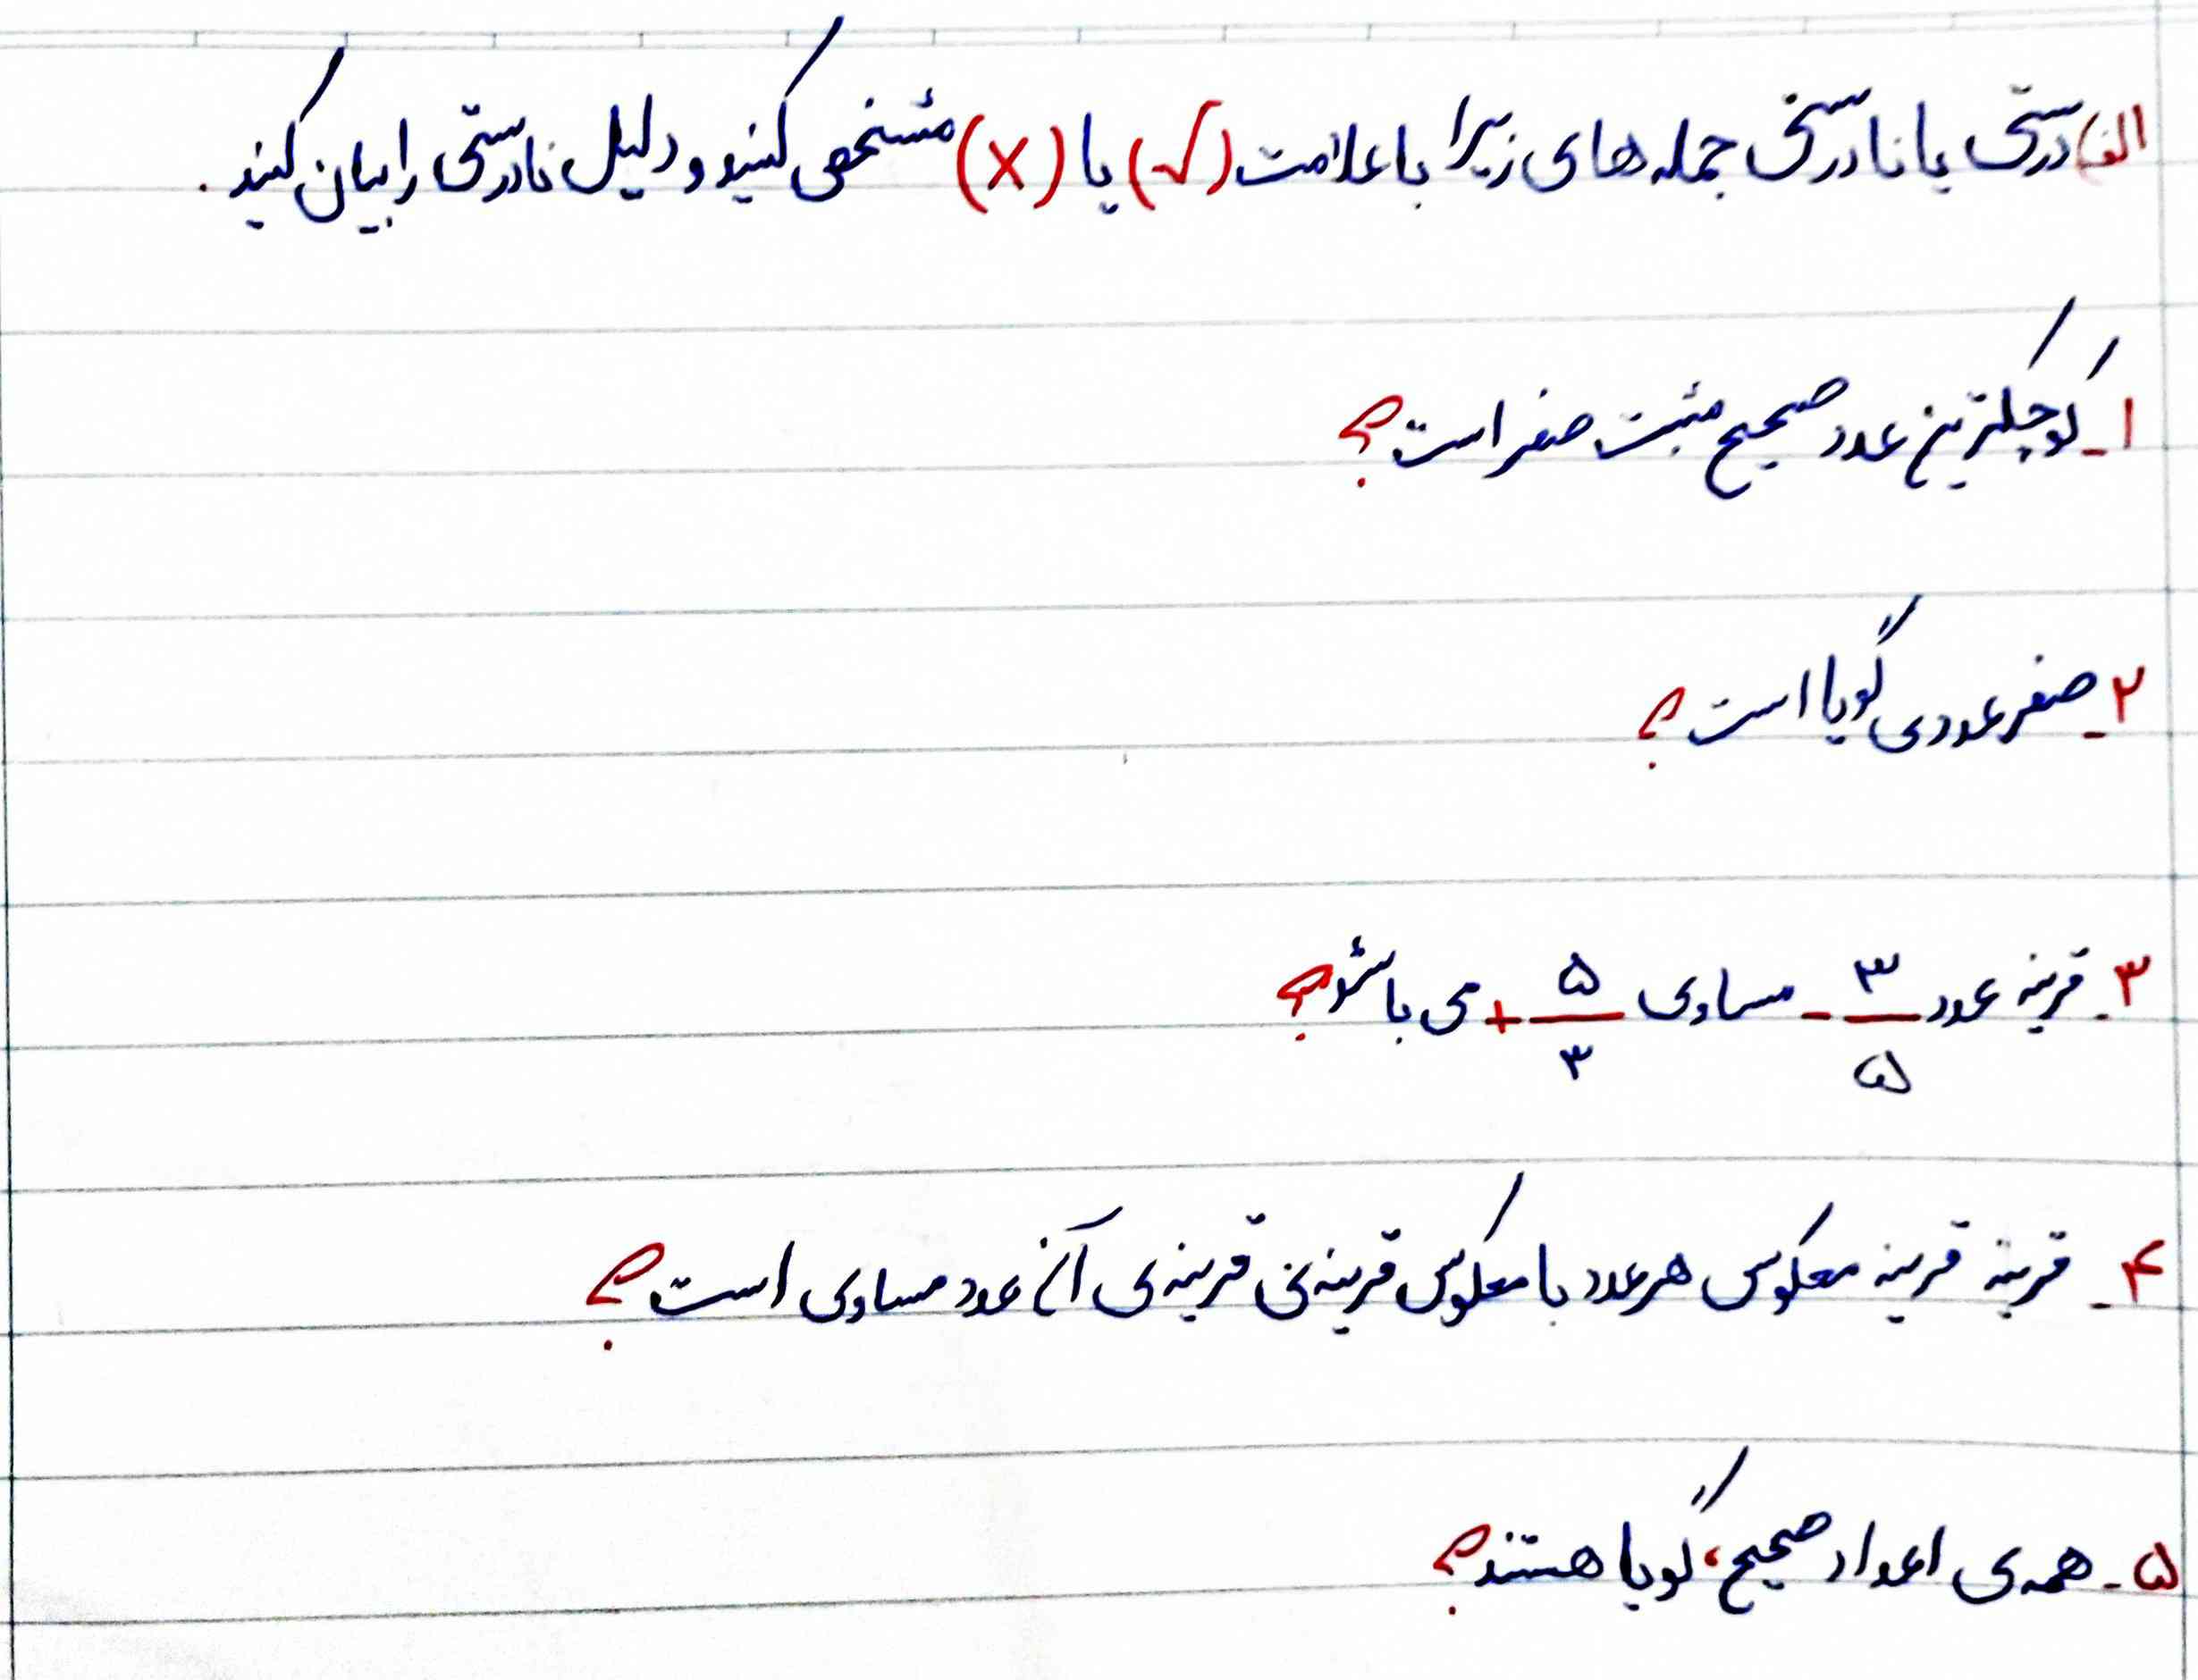 الف) درستی یا نادرستی جمله های زیر را با علامت (√) یا (×) مشخص کنید و دلیل نادرستی را بیان کنید .
۱- کوچکترین عدد صحیح مثبت صفر است؟
۲- صفر عددی گویا است؟
۳- قرینه عدد -۳/۵ مساوی +۵/۳ می باشد؟
۴- قرینه قرینه معکوس هر عدد با معکوس قرینه‌ی قرینه‌ی آن عدد مساوی است؟
۵- همه‌ی اعداد صحیح، گویا هستند؟